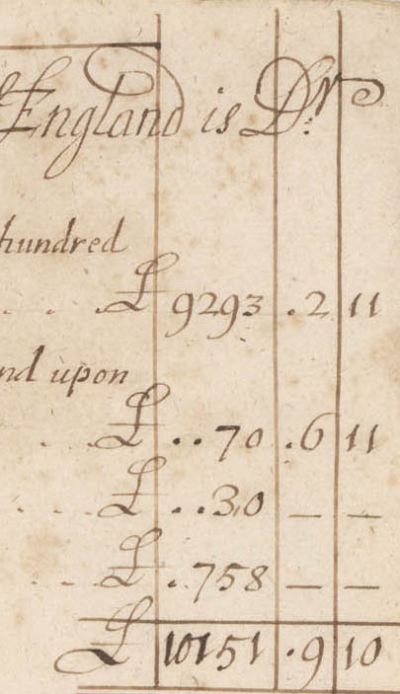 England is Dr
hundred
. . . £ 9293 .2 11
nd upon
. . £ ..70 .6 11
. . . £ ..30 — —
. . . £ .758 — —
£ 10151 .9 10